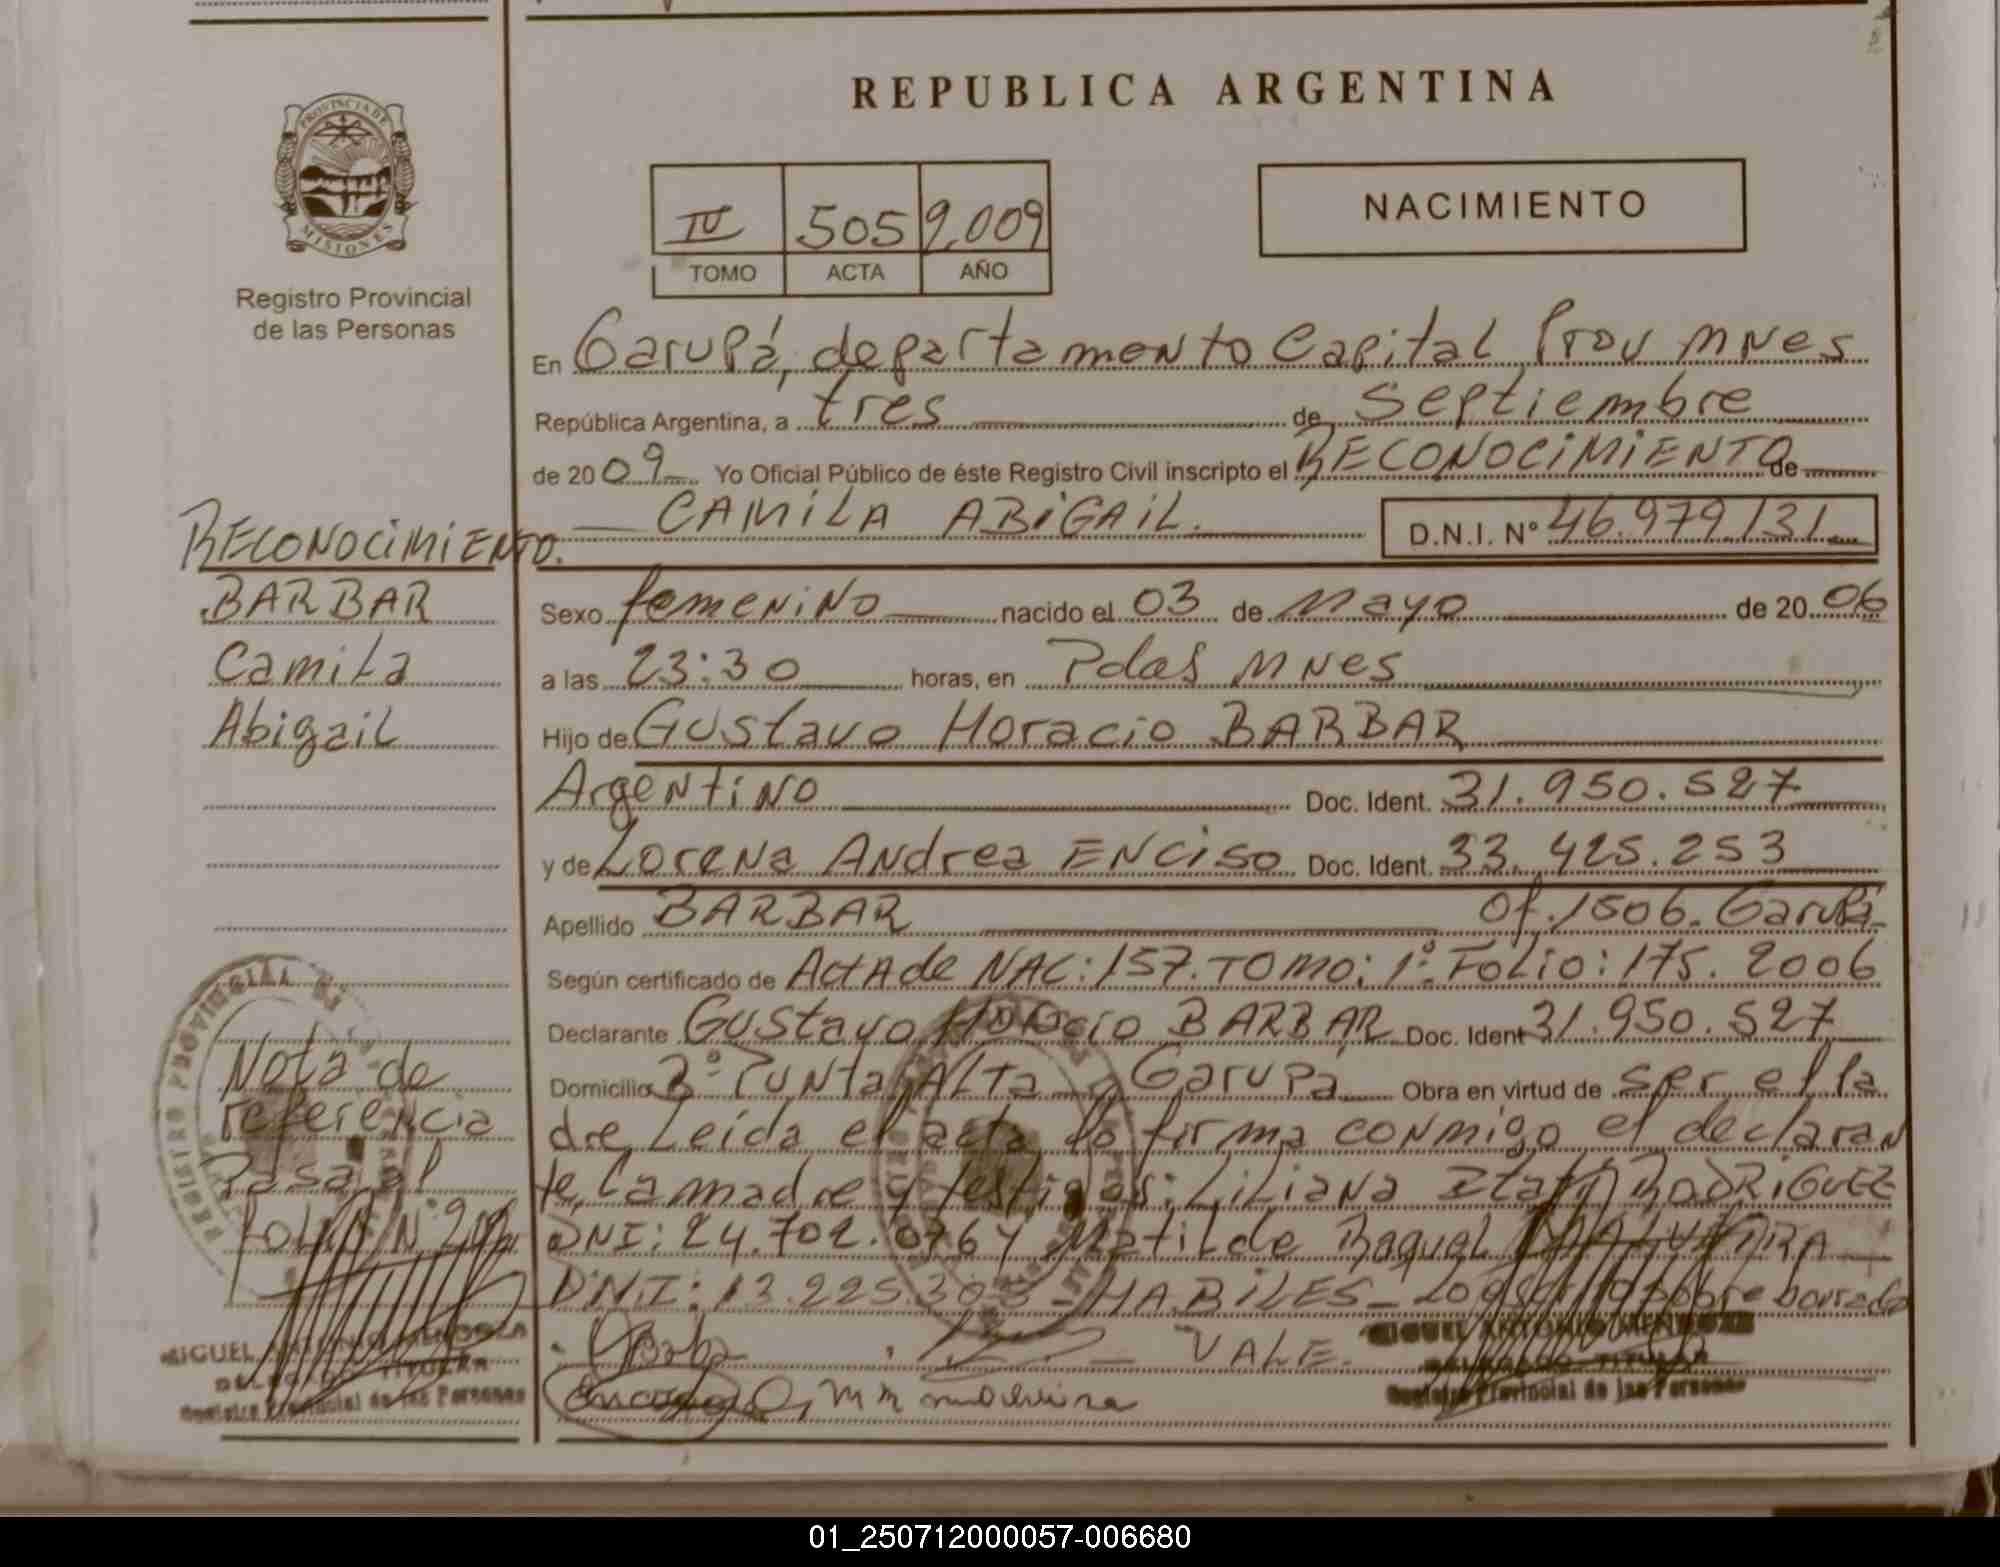 REPUBLICA ARGENTINA
PROVINCIA DE
MISIONES
Registro Provincial
de las Personas
IV 505 2,009
TOMO ACTA AÑO
NACIMIENTO
En Garupá, departamento Capital Prov MNes
República Argentina, a tres de septiembre
de 2009 Yo Oficial Público de éste Registro Civil inscripto el RECONOCIMIENTO de
CAMILA ABIGAIL. D.N.I. Nº 46.979.131
RECONOCIMIENTO.
BARBAR
Camila
Abigail
Sexo femenino nacido el 03 de Mayo de 2006
a las 23:30 horas, en Pdas MNes
Hijo de Gustavo Horacio BARBAR
Argentino Doc. Ident. 31.950.527
y de Lorena Andrea ENCISO Doc. Ident. 33.425.253
Apellido BARBAR Of.1506. Garupá
Según certificado de Acta de NAC: 157. TOMO: 1º. Folio: 175. 2006
Declarante Gustavo Horacio BARBAR Doc. Ident 31.950.527
Domicilio Bº Punta Alta Garupá Obra en virtud de ser el Pa
dre, Leída el acta la firma conmigo el declaran
te, La madre y testigos: Liliana Itatí RODRIGUEZ
DNI: 24.702. y Matilde Raquel
D.N.I: 13.225.303 - HABILES - sobre borrado
VALE.
Nota de
referencia
Pasa al
Folio Nº
MIGUEL ANTONIO MENDOZA
DELEGADO TITULAR
Registro Provincial de las Personas
MIGUEL ANTONIO MENDOZA
DELEGADO TITULAR
Registro Provincial de las Personas
01_250712000057-006680